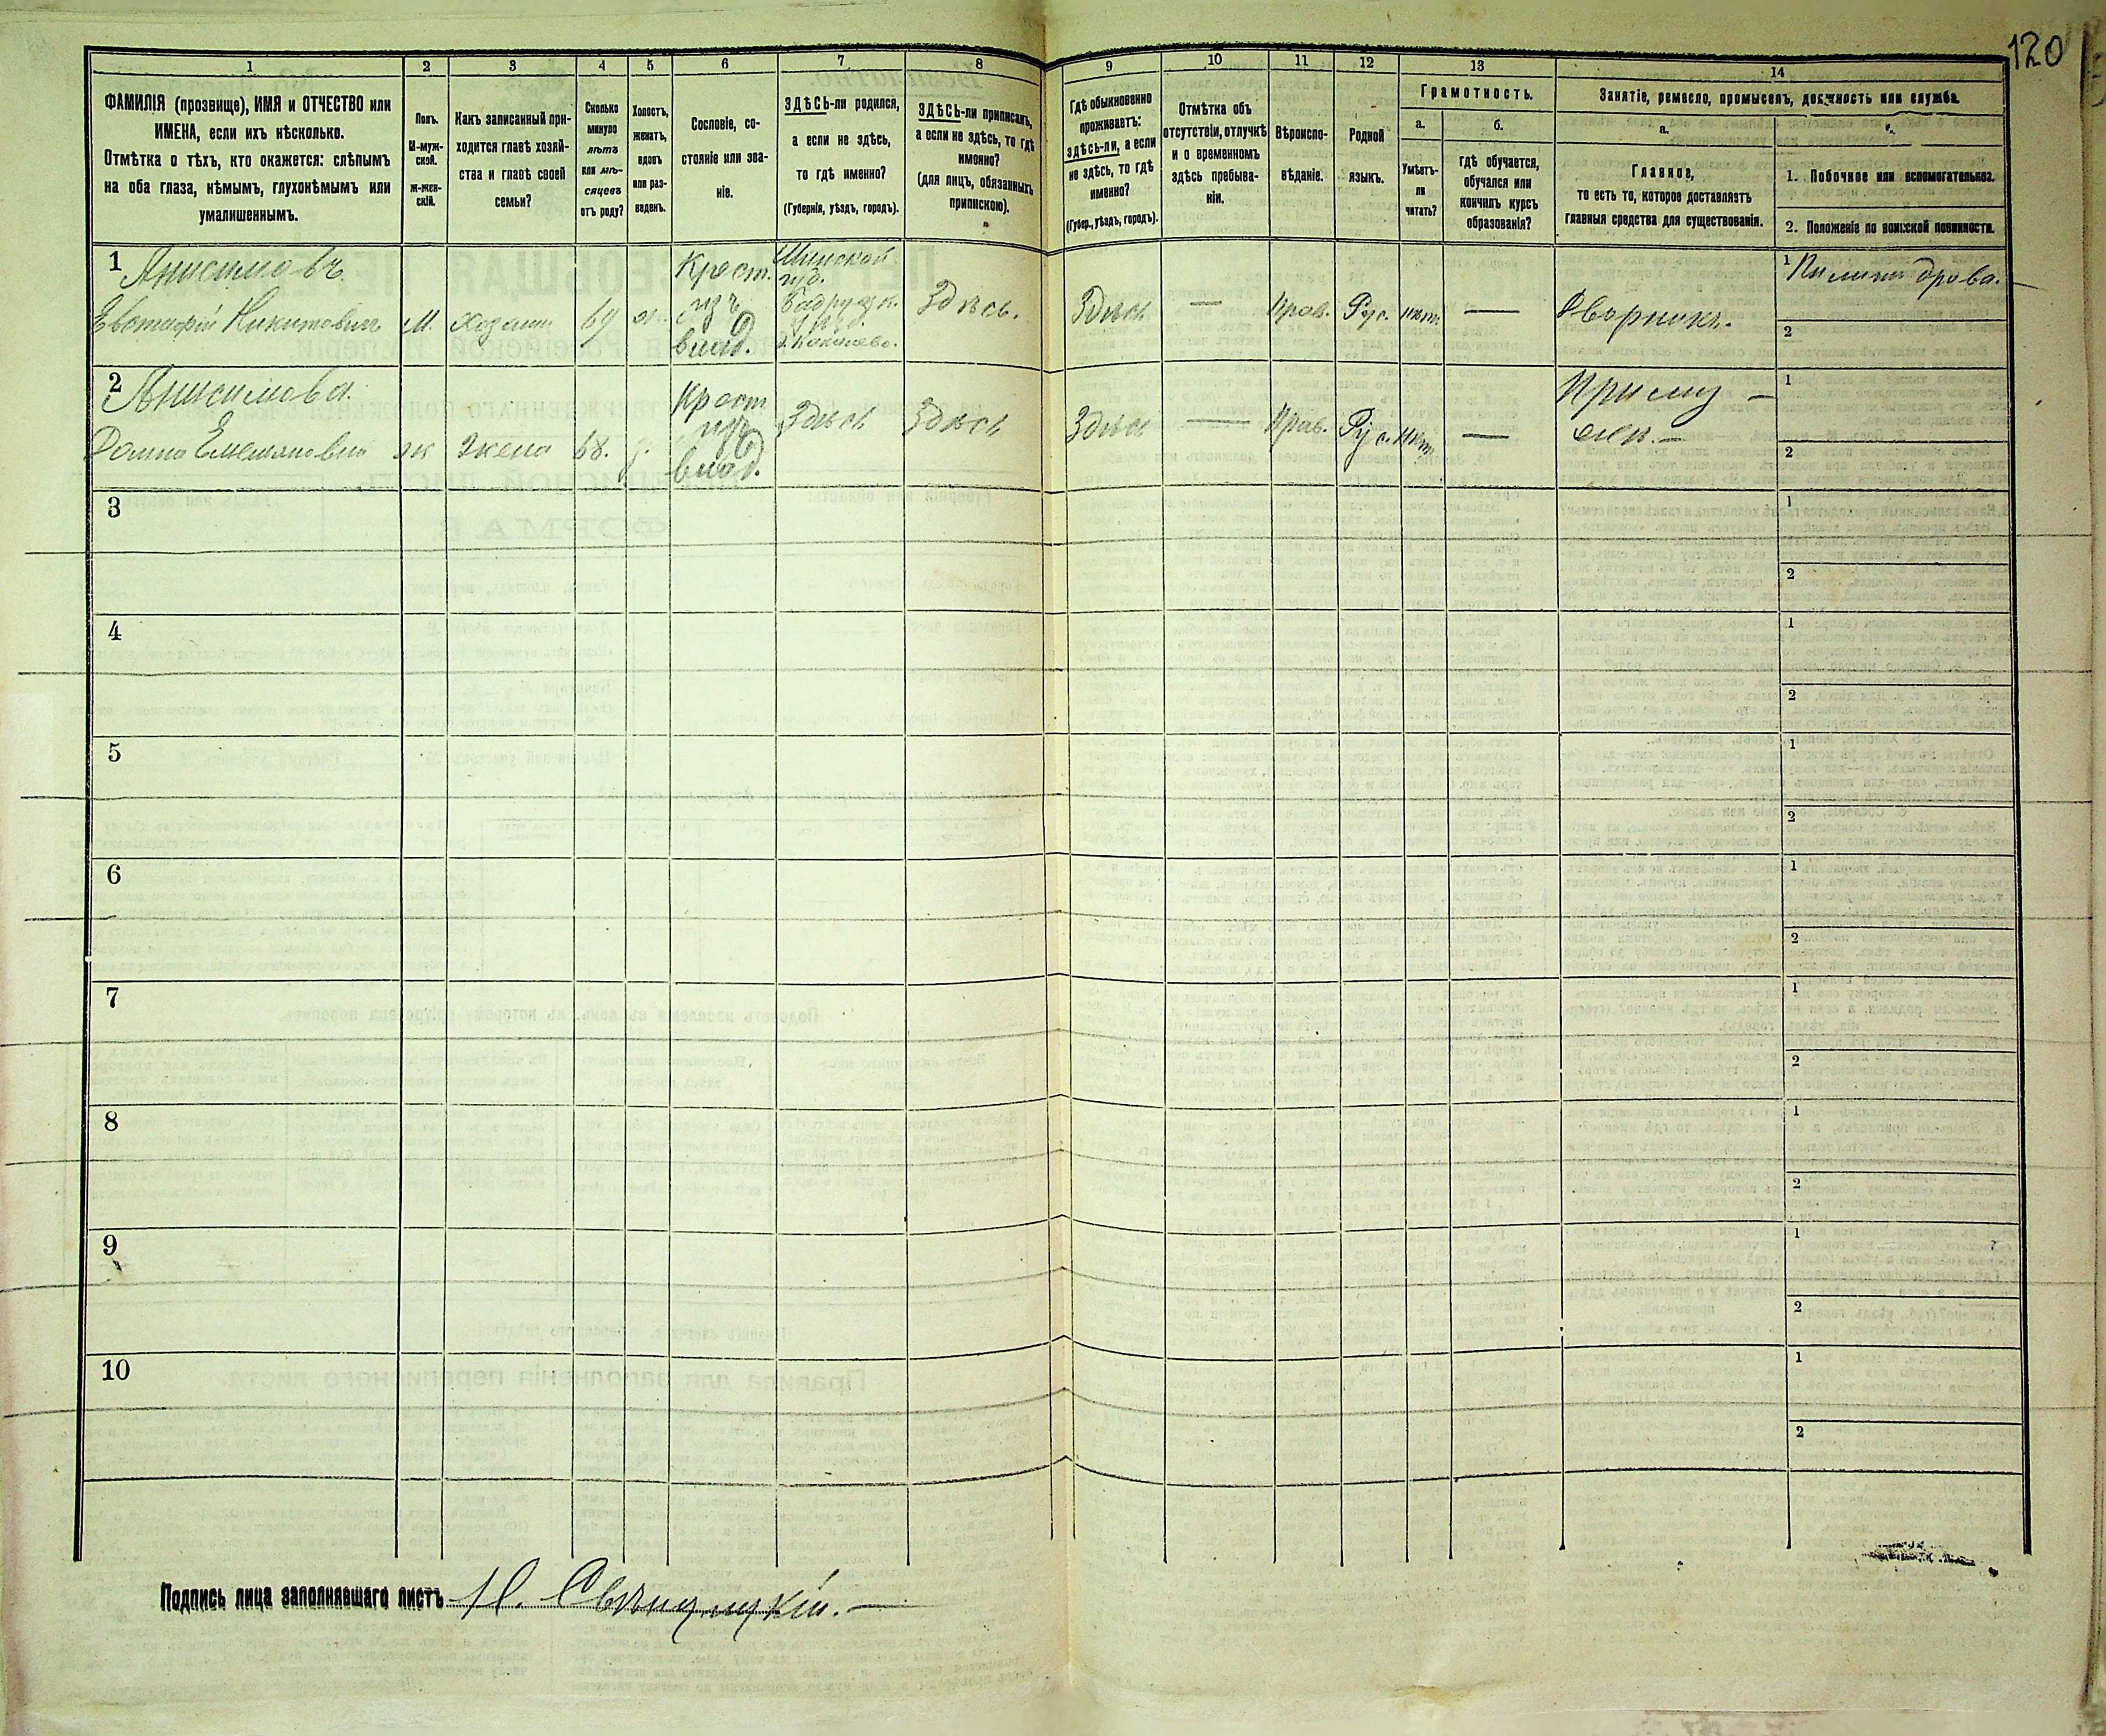 120
1
2
3
4
5
6
7
8
9
10
11
12
13
14
ФАМИЛІЯ (прозвище), ИМЯ и ОТЧЕСТВО или
ИМЕНА, если ихъ нѣсколько.
Отмѣтка о тѣхъ, кто окажется: слѣпымъ
на оба глаза, нѣмымъ, глухонѣмымъ или
умалишеннымъ.
Полъ.
М-муж-
ской.
ж-жен-
скій.
Какъ записанный при-
ходится главѣ хозяй-
ства и главѣ своей
семьи?
Сколько
минуло
лѣтъ
или мѣ-
сяцевъ
отъ роду?
Холостъ,
женатъ,
вдовъ
или раз-
веденъ.
Сословіе, со-
стояніе или зва-
ніе.
ЗДѢСЬ-ли родился,
а если не здѣсь,
то гдѣ именно?
(Губернія, уѣздъ, городъ).
ЗДѢСЬ-ли приписанъ,
а если не здѣсь, то гдѣ
именно?
(для лицъ, обязанныхъ
припискою).
Гдѣ обыкновенно
проживаетъ:
здѣсь-ли, а если
не здѣсь, то гдѣ
именно?
(Губер., уѣздъ, городъ).
Отмѣтка объ
отсутствіи, отлучкѣ
и о временномъ
здѣсь пребыва-
ніи.
Вѣроиспо-
вѣданіе.
Родной
языкъ.
Грамотность.
а.
Умѣетъ-
ли
читать?
б.
гдѣ обучается,
обучался или
кончилъ курсъ
образованія?
Занятіе, ремесло, промыселъ, должность или служба.
а.
Главное,
то есть то, которое доставляетъ
главныя средства для существованія.
1. Побочное или вспомогательное.
2. Положеніе по воинской повинности.
1 Анисимовъ
Евстафій Никитовичъ
М.
Хозяинъ
69
Крест.
изъ
влад.
Минской
губ.
Здѣсь.
Здѣсь
—
Прав.
Рус.
нѣтъ
—
Дворникъ.
1 Пилитъ дрова.
2
2 Анисимова
Домна Емельяновна
ж
жена
68.
Крест
изъ
влад.
Здѣсь
Здѣсь
Здѣсь
—
Прав.
Рус.
нѣтъ
—
При муж-
1
2
3
1
2
4
1
2
5
1
2
6
1
2
7
1
2
8
1
2
9
1
2
10
1
2
Подпись лица заполнявшаго листъ